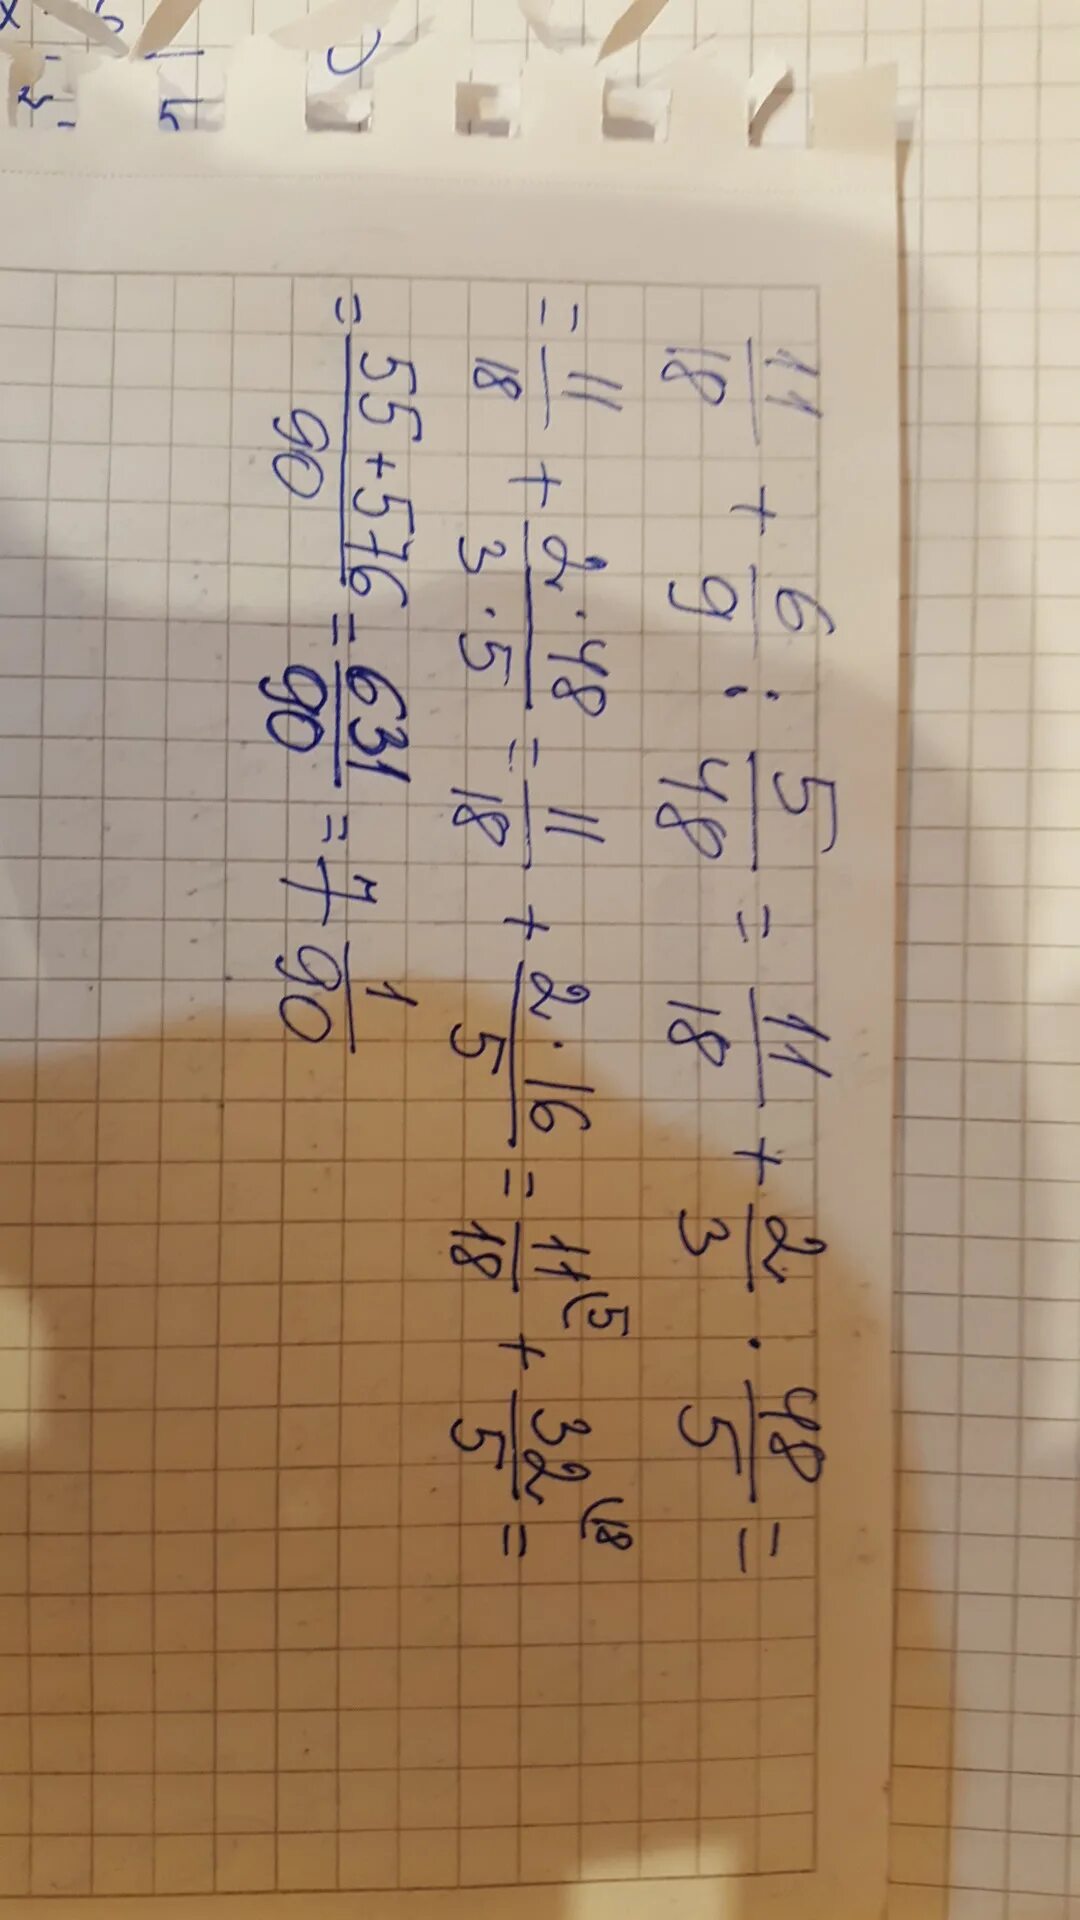 11/18 + 6/9 : 5/48 = 11/18 + 2/3 · 48/5 =
= 11/18 + 2·48/3·5 = 11/18 + 2·16/5 = 11(5/18 + 32(18/5 =
= 55+576/90 = 631/90 = 7 1/90